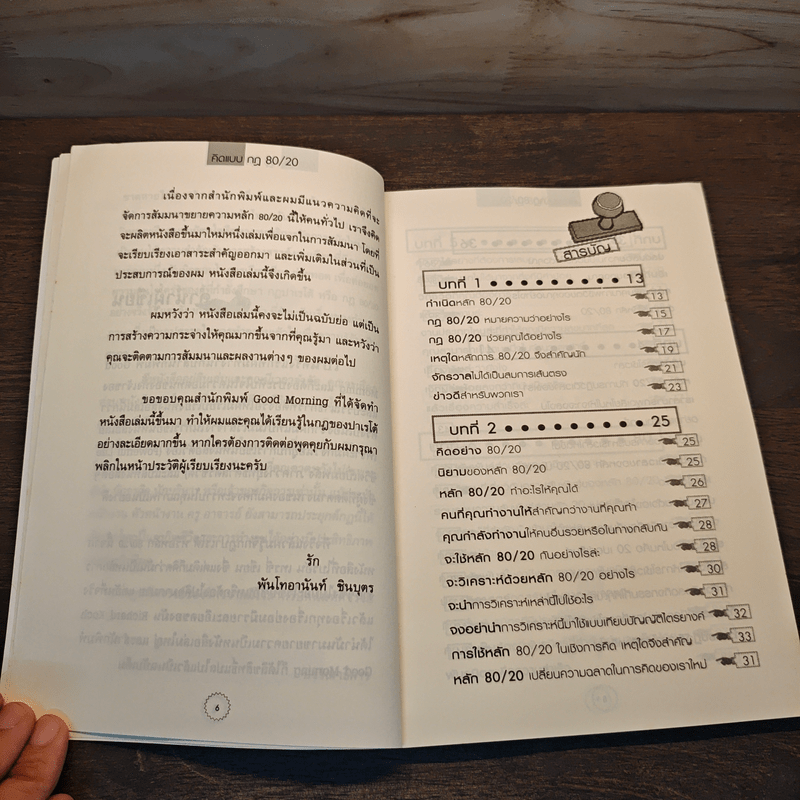 คิดแบบ กฎ 80/20
เนื่องจากสำนักพิมพ์และผมมีแนวความคิดที่จะ
จัดการสัมมนาขยายความหลัก 80/20 นี้ให้คนทั่วไป เราจึงคิด
จะผลิตหนังสือขึ้นมาใหม่หนึ่งเล่มเพื่อแจกในการสัมมนา โดยที่
จะเรียบเรียงเอาสาระสำคัญออกมา และเพิ่มเติมในส่วนที่เป็น
ประสบการณ์ของผม หนังสือเล่มนี้จึงเกิดขึ้น
ผมหวังว่า หนังสือเล่มนี้คงจะไม่เป็นฉบับย่อ แต่เป็น
การสร้างความกระจ่างให้คุณมากขึ้นจากที่คุณรู้มา และหวังว่า
คุณจะติดตามการสัมมนาและผลงานต่างๆ ของผมต่อไป
ขอขอบคุณสำนักพิมพ์ Good Morning ที่ได้จัดทำ
หนังสือเล่มนี้ขึ้นมา ทำให้ผมและคุณได้เรียนรู้ในกฎของปาเรโต้
อย่างละเอียดมากขึ้น หากใครต้องการติดต่อพูดคุยกับผมกรุณา
พลิกในหน้าประวัติผู้เรียบเรียงนะครับ
รัก
พันโทอานันท์ ชินบุตร
6
สารบัญ
บทที่ 1 • • • • • • • • • 13
กำเนิดหลัก 80/20 13
กฎ 80/20 หมายความว่าอย่างไร 15
กฎ 80/20 ช่วยคุณได้อย่างไร 17
เหตุใดหลักการ 80/20 จึงสำคัญนัก 19
จักรวาลไม่ได้เป็นสมการเส้นตรง 21
ข่าวดีสำหรับพวกเรา 23
บทที่ 2 • • • • • • • • • 25
คิดอย่าง 80/20 25
นิยามของหลัก 80/20 25
หลัก 80/20 ทำอะไรให้คุณได้ 26
คนที่คุณทำงานให้สำคัญกว่างานที่คุณทำ 27
คุณกำลังทำงานให้คนอื่นรวยหรือในทางกลับกัน 28
จะใช้หลัก 80/20 กันอย่างไรล่ะ 28
จะวิเคราะห์ด้วยหลัก 80/20 อย่างไร 30
จะนำการวิเคราะห์เหล่านี้ไปใช้อะไร 31
จงอย่านำการวิเคราะห์นี้มาใช้แบบเทียบบัญญัติไตรยางค์ 32
การใช้หลัก 80/20 ในเชิงการคิด เหตุใดจึงสำคัญ 33
หลัก 80/20 เปลี่ยนความฉลาดในการคิดของเราใหม่ 31